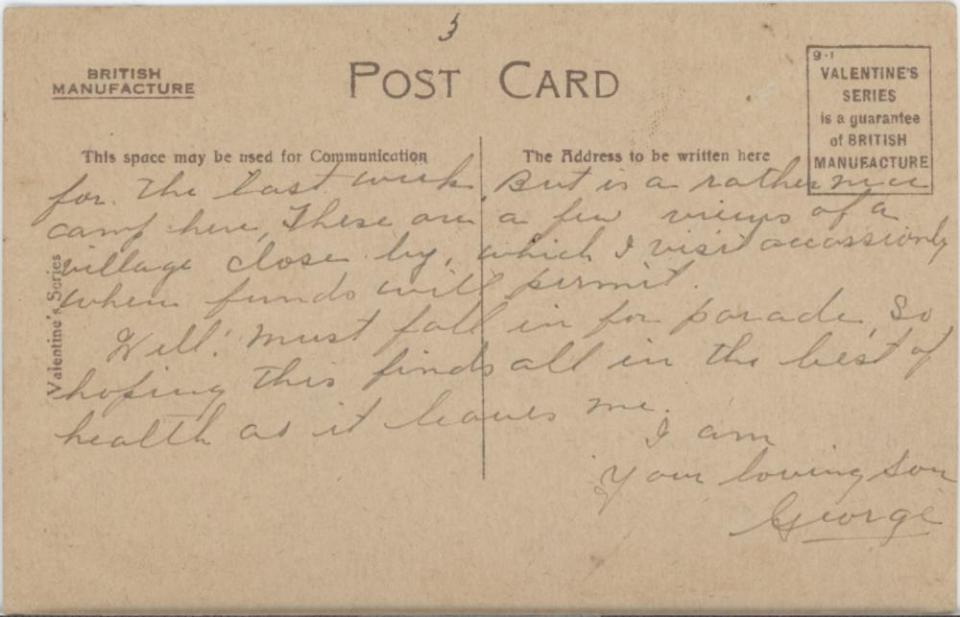 3
BRITISH
MANUFACTURE
POST CARD
9-1
VALENTINE'S
SERIES
is a guarantee
of BRITISH
MANUFACTURE
This space may be used for Communication
The Address to be written here
Valentine's Series
for the last week But is a rather nice
camp here, These are a few views of a
village close by, which I visit accassionly
when funds will permit.
Well! must fall in for parade, So
hoping this finds all in the best of
health as it leaves me.
I am
Your loving Son
George